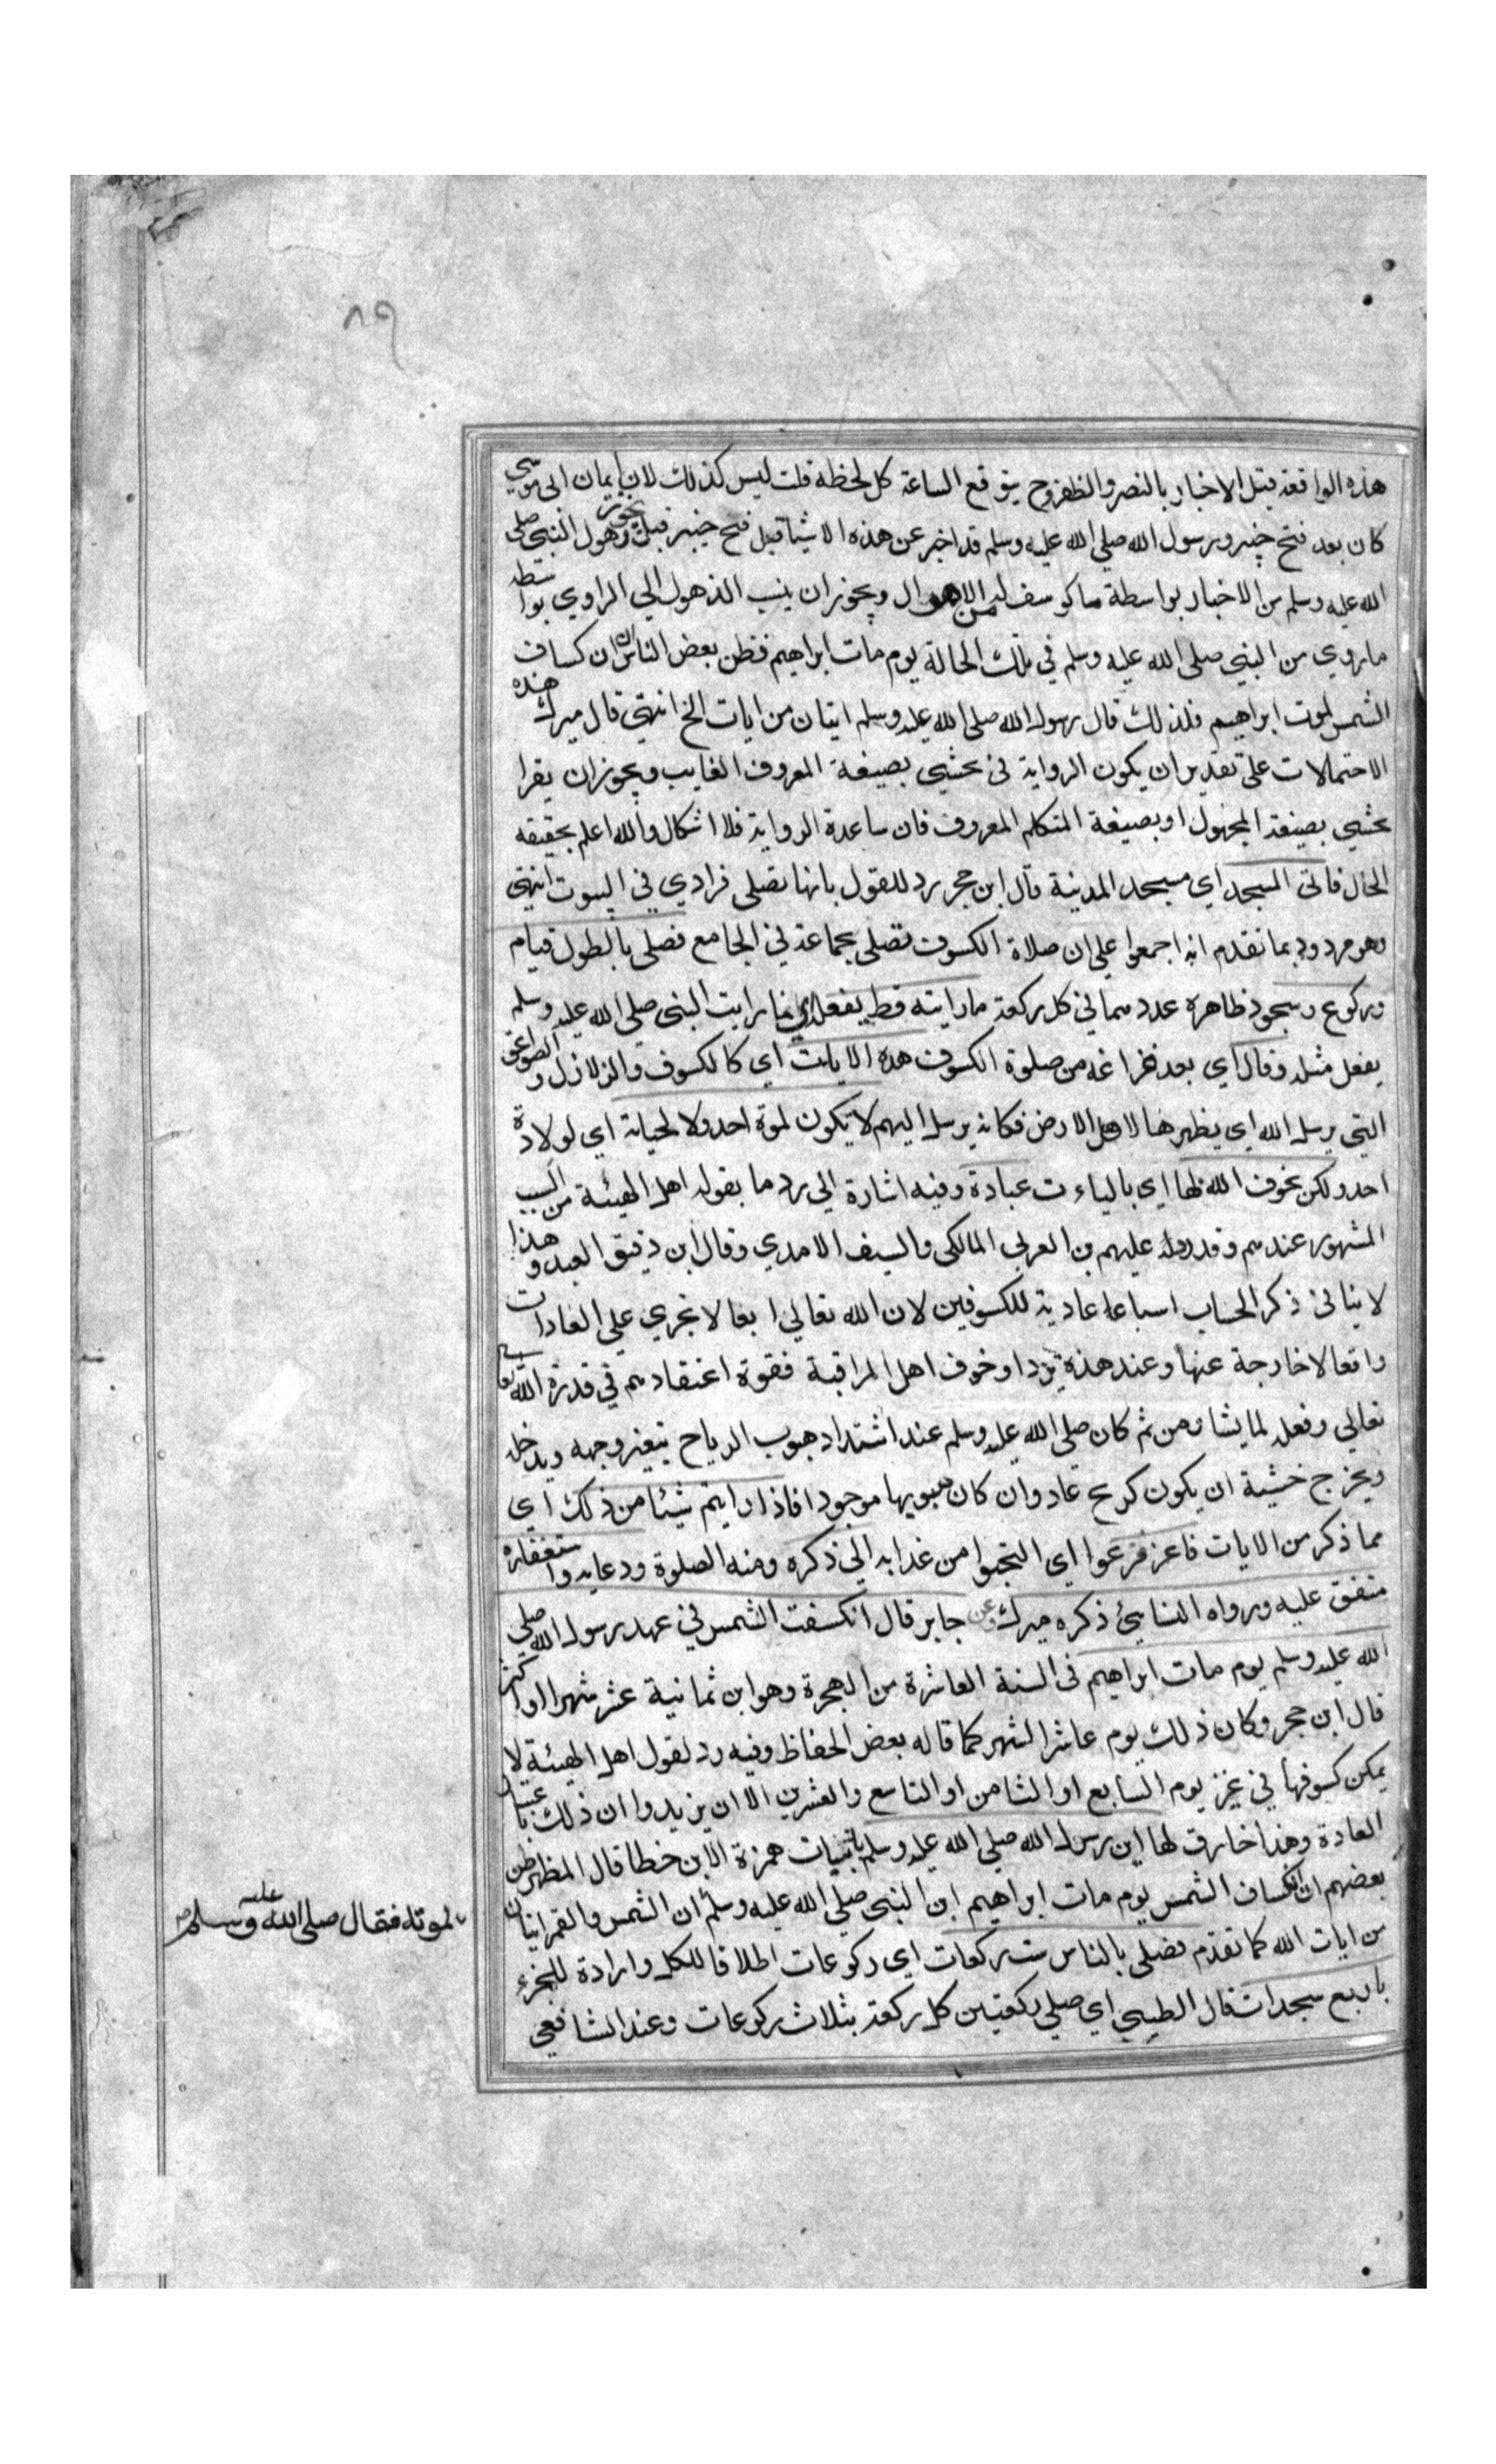 ٨٩
هذه الواقعة قبل الاخبار بالنصر والظفر وح يتوقع الساعة كل لحظة قلت ليس كذلك لان إيمان ابى موسي
كان بعد فتح خيبر ورسول الله صلي الله عليه وسلم قد اخبر عن هذه الاشيا قبل فتح خيبر قيل يجوز ذهول النبي صلى
الله عليه وسلم من الاخبار بواسطة ما كوسف له من الاهوال ويجوز ان ينسب الذهول الي الراوي بواسطه
ما روي من النبي صلى الله عليه وسلم في تلك الحالة يوم مات ابراهيم فظن بعض الناس ان كساف
الشمس لموت ابراهيم فلذلك قال رسول الله صلى الله عليه وسلم ايتان من ايات الخ انتهي قال ميرك هذه
الاحتمالات على تقدير ان يكون الرواية في يخشي بصيغة المعروف الغايب ويجوز ان يقرا
يخشي بصيغة المجهول او بصيغة المتكلم المعروف فان ساعدة الرواية فلا اشكال والله اعلم بحقيقه
الحال فاتى المسجد اي مسجد المدنية قال ابن حجر رد للقول بانها تصلى فرادي في البيوت انتهى
وهو مردود بما تقدم انه اجمعوا علي ان صلاة الكسوف تصلى بجماعة في الجامع فصلى بالطول قيام
وركوع وسجود ظاهره عددهما في كل ركعة ما رايته قط يفعله اي ما رايت النبي صلي الله عليه وسلم
يفعل مثله وقال اي بعد فراغه من صلوة الكسوف هذه الايات اي كالكسوف والزلازل والصواعق
التي يرسل الله اي يظهرها لاهل الارض فكانه يرسله اليهم لا يكون لموة احد ولا لحياتة اي لولادة
احد ولكن يخوف الله بها اي بالياءت عبادة وفيه اشارة الي رد ما يقوله اهل الهيئة من السبب
المشهور عندهم وقد رد عليهم بن العربي المالكى والسيف الامدي وقال ابن دقيق العيد وهذا
لا ينافى ذكر الحساب اسبابا عادية للكسوفين لان الله تعالي افعالا تجري على العادات
وافعالا خارجة عنها وعند هذه يزداو خوف اهل المراقبة فقوة اعتقادهم في قدرة الله تعا
تعالي وفعله لما يشا ومن ثم كان صلي الله عليه وسلم عند اشتداد هبوب الرياح يتغير وجهه ويدخل
ويخرج خشية ان يكون كريح عاد وان كان هبوبها موجودا فاذا رايتم شيئا من ذلك اي
مما ذكر من الايات فاعز فزعوا اي التجبوا من عذابه الي ذكره ومنه الصلوة ودعايه واستغفاره
متفق عليه ورواه النسايئ ذكره ميرك وعن جابر قال انكسفت الشمس في عهد رسول الله صلى
الله عليه وسلم يوم مات ابراهيم فى السنة العاشرة من الهجرة وهو ابن ثمانية عشر شهرا او اكثر
قال ابن حجر وكان ذلك يوم عاشر الشهر كما قاله بعض الحفاظ وفيه رد لقول اهل الهيئة لا
يمكن كسوفها في غير يوم السابع او الثامن او التاسع والعشرين الا ان يزيدوا ان ذلك باعتبار
العادة وهذا خارق لها اين رسول الله صلي الله عليه وسلم باثبات همزة الابن خطا قال المظهر ظن
بعضهم ان انكساف الشمس يوم مات ابراهيم ابن النبي صلي الله عليه وسلم ان الشمس والقمر ايتان
من ايات الله كما تقدم فصلى بالناس ست ركعات اي ركوعات اطلاقا للكل وارادة للجزء
باربع سجدات قال الطيبي اي صلي ركعتين كل ركعة بثلاث ركوعات وعند الشافعي
لموته فقال صلى الله عليه وسلم صح